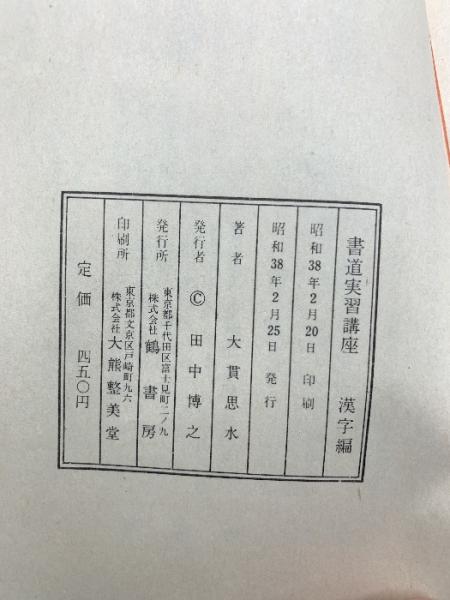 書道実習講座 漢字編
昭和38年2月20日 印刷
昭和38年2月25日 発行
著者 大貫思水
発行者 © 田中博之
発行所 東京都千代田区富士見町二ノ九
株式会社 鶴書房
印刷所 東京都文京区戸崎町九六
株式会社 大熊整美堂
定価 四五〇円